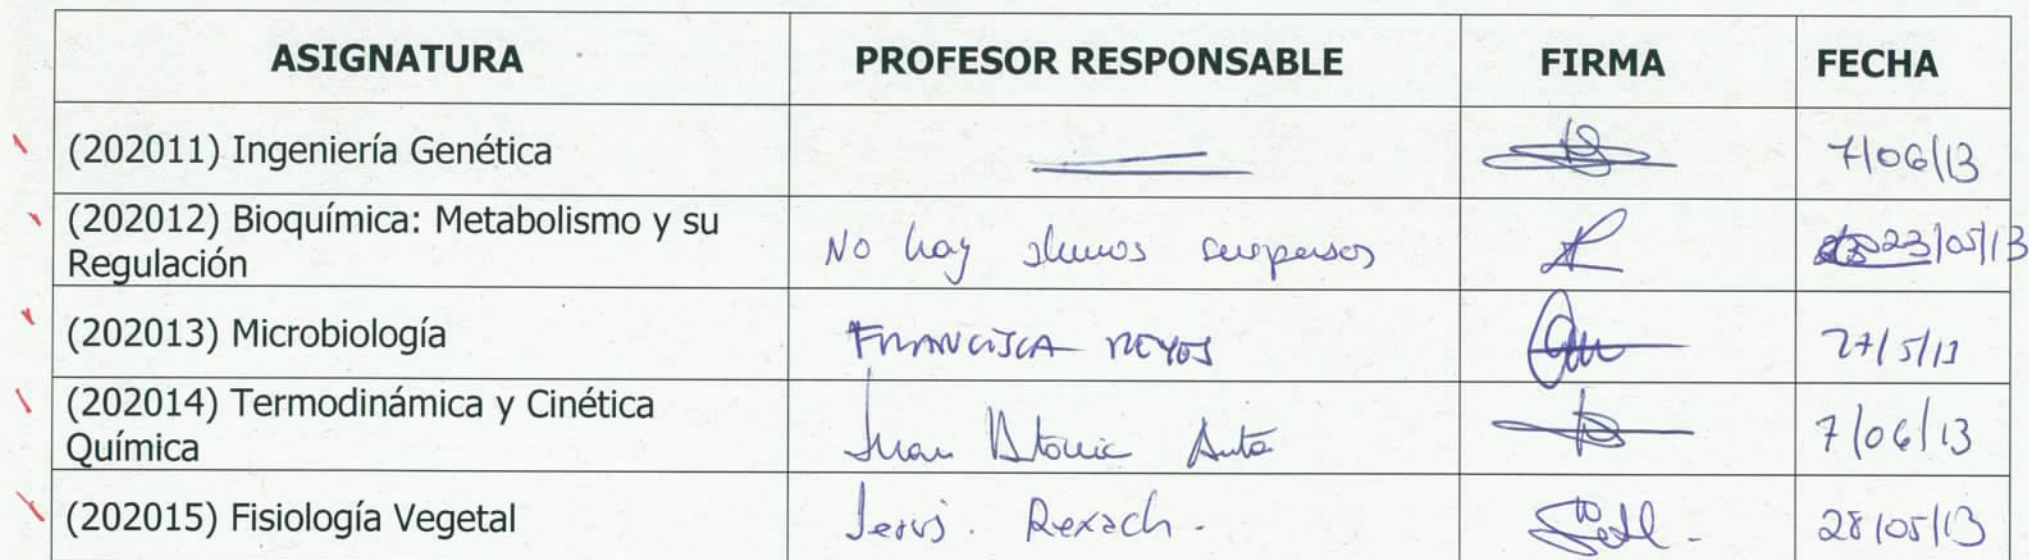 ASIGNATURA PROFESOR RESPONSABLE FIRMA FECHA
(202011) Ingeniería Genética 7/06/13
(202012) Bioquímica: Metabolismo y su
Regulación
No hay alumnos suspensos 23/05/13
(202013) Microbiología FRANCISCA REYES 27/5/13
(202014) Termodinámica y Cinética
Química
Juan Antonio Anta 7/06/13
(202015) Fisiología Vegetal Jesús. Rexach. 28/05/13